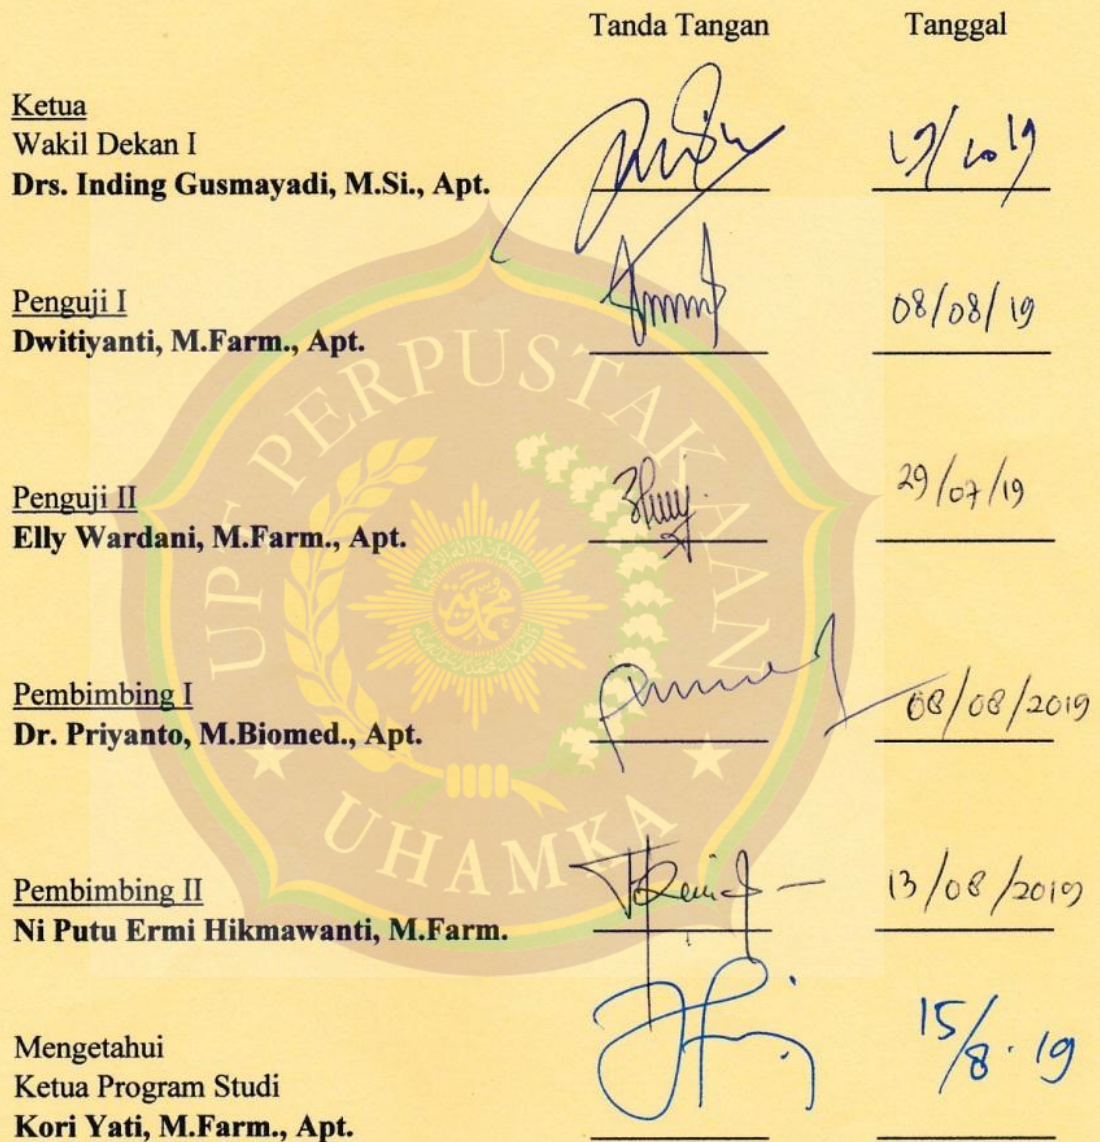 Tanda Tangan Tanggal
Ketua
Wakil Dekan I
Drs. Inding Gusmayadi, M.Si., Apt.
Penguji I
Dwitiyanti, M.Farm., Apt.
08/08/19
Penguji II
Elly Wardani, M.Farm., Apt.
29/07/19
Pembimbing I
Dr. Priyanto, M.Biomed., Apt.
08/08/2019
Pembimbing II
Ni Putu Ermi Hikmawanti, M.Farm.
13/08/2019
Mengetahui
Ketua Program Studi
Kori Yati, M.Farm., Apt.
15/8.19
UPT PERPUSTAKAAN
UHAMKA